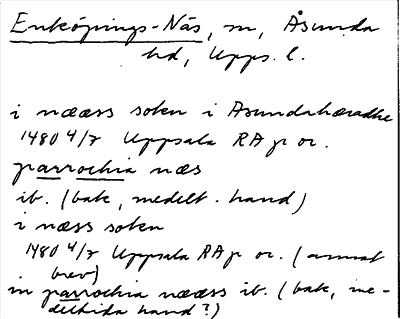 Enköpings-Näs, sn, Åsunda
hd, Upps. l.
i næærs soken i Asundahæradhe
1480 4/7 Uppsala RA p or.
parrochia næs
ib. (bak, medelt. hand)
i næss soken
1480 4/7 Uppsala RA p or. (annat
brev)
in parrochia næærs ib. (bak, me-
deltida hand?)